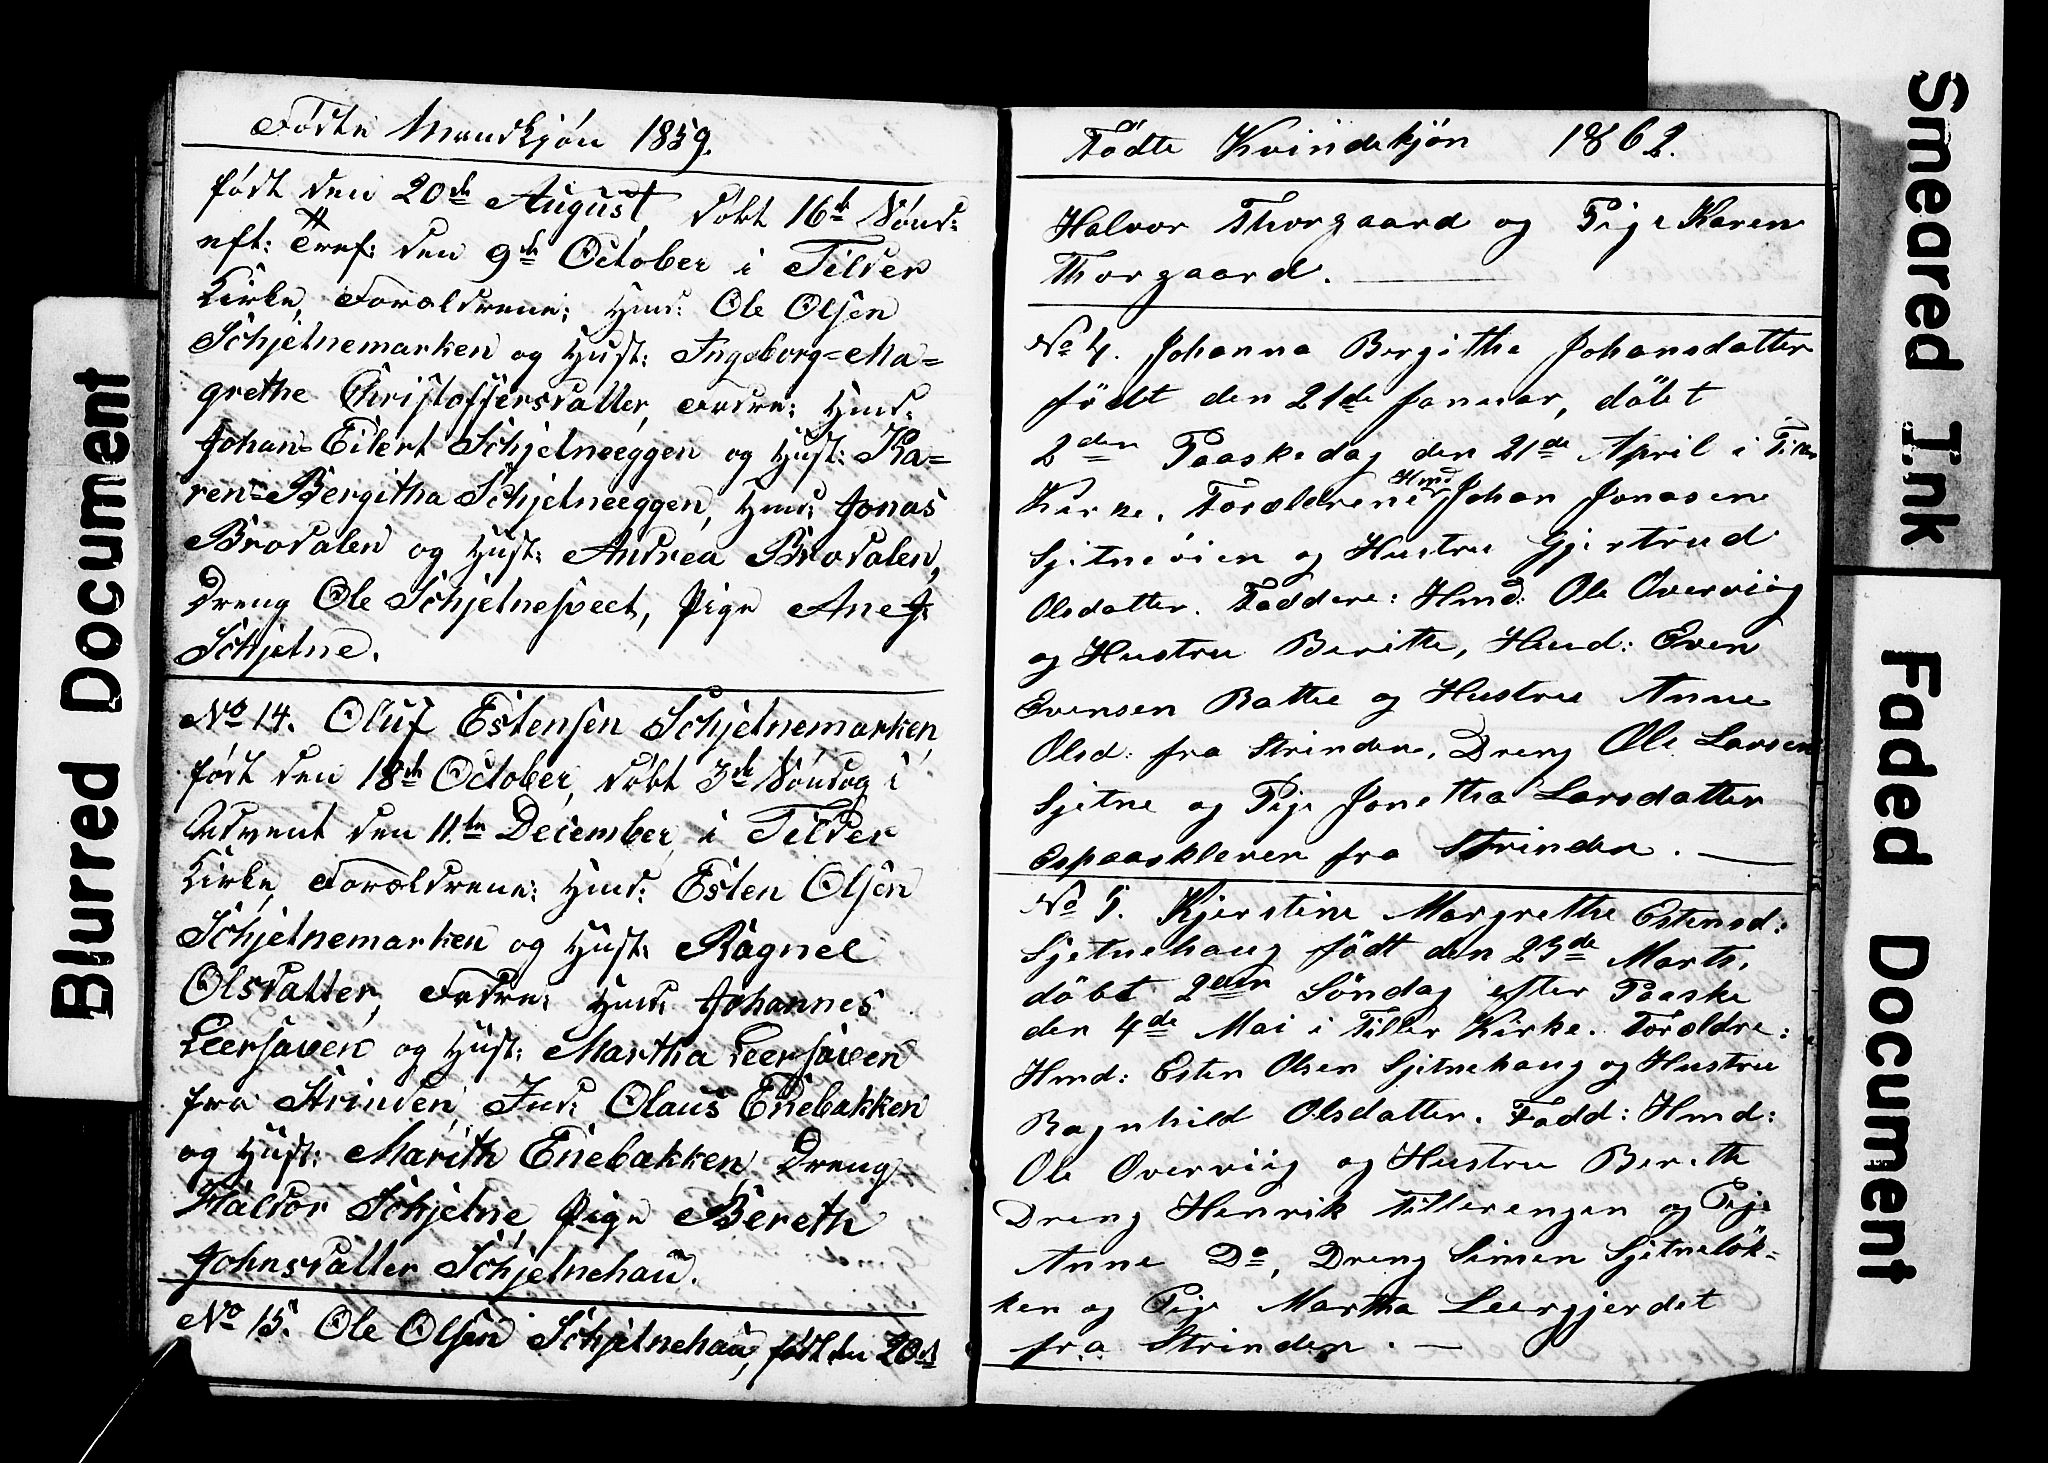 Blurred Document
Fødte Mandkjøn 1859.
født den 20de August, døbt 16de Sønd:
eft: Tref: den 9de October i Tilder
Kirke, Forældrene: Hmd: Ole Olsen
Schjetnemarken og Hust: Ingeborg=Ma=
grethe Christoffersdatter, Fadre: Hmd:
Johan=Eilert Schjetneeggen og Hust: Ka=
ren=Bergitha Schjetneeggen, Hmd: Jonas
Brodalen og Hust: Andrea Brodalen,
Dreng Ole Schjetnesveet, Pige Ane J:
Schjetne.
No 14. Oluf Estensen Schjetnemarken,
født den 18de October, døbt 3de Søndag i
Advent den 11te December, i Tilder
Kirke, Forældrene: Hmd: Esten Olsen
Schjetnemarken og Hust: Ragnel
Olsdatter, Fadre: Hmd: Johannes
Leersaven og Hust: Martha Leersaven
fra Strinden, Ind: Olaus Enebakken
og Hust: Marith Enebakken, Dreng
Haldor Schjetne, Pige Bereth
Johnsdatter Schjetnehau.
No 15. Ole Olsen Schjetnehau, født den 20de
Födte Kvindekjön 1862.
Halvor Thorgaard og Pige Karen
Thorgaard.
No 4. Johanna Bergithe Johansdatter
födt den 21de Januar, döbt
2den Paaskedag den 21de April i Tiller
Kirke. Forældrene Hmd Johan Jonasen
Sjetneöien og Hustru Gjertrud
Olsdatter. Faddere: Hmd: Ole Overviig
og Hustru Berithe, Hmd: Even
Evensen Rathe og Hustru Anne
Olsd: fra Strinden, Dreng Ole Larsen
Sjetne og Pige Jonetha Larsdatter
Espaaskleven fra Strinden.
No 5. Kjerstine Margrethe Estensd:
Sjetnehaug födt den 23de Marts,
döbt 2den Söndag efter Paaske
den 4de Mai i Tiller Kirke. Forældre:
Hmd: Esten Olsen Sjetnehaug og Hustru
Ragnhild Olsdatter. Fadd: Hmd:
Ole Overviig og Hustru Bereth
Dreng Henrik Tillerengen og Pige
Anne Do, Dreng Simen Sjetnelök-
ken og Pige Martha Leergjerdet
fra Strinden.
Smeared Ink
Faded Document